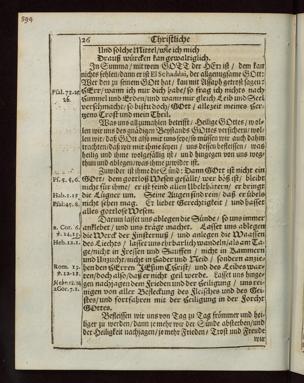 594
26 Christliche
Und solche Mittel / wie ich mich
Drauß würcken kan gewaltiglich.
In Summa / mit wem GOTT der HErr ist / dem kan
nichts fehlen / dann er ist El Schaddai, der allgenugsame GOtt:
Wer den zu seinem GOtt hat / kan mit Assaph getrost sagen:
HErr / wann ich nur dich habe / so frag ich nichts nach
Psal. 73. 25.
26.
Himmel und Erden / und wann mir gleich Leib und Seel
verschmacht / so bistu doch / GOtt / allezeit meines Hertzens
Trost und mein Theil.
Was uns allzumahlen betrifft / Heilige Gottes / wollen
wir uns des gnädigen Beystands GOttes versichern / wollen
wir / daß GOtt also mit uns seye / so müssen wir auch dahin
trachten / daß wir mit ihme seyen / uns dessen befleissen / was
heilig und ihme wolgefällig ist / und hingegen von uns wegthun
und ablegen / was ihme zuwider ist.
Zuwider ist ihme die Sünd: Dann GOtt ist nicht ein
Ps. 5. 5. 6.
GOtt / dem gottloß Wesen gefällt / wer böß ist / bleibt
nicht für ihme / er ist feind allen Ubelthätern / er bringt
die Lügner um. Seine Augen sind rein / daß er übels
Hab. 1. 13
nicht sehen mag. Er liebet Gerechtigkeit / und hasset
Psal. 45. 8.
alles gottlose Wesen.
Darum lasset uns ablegen die Sünde / so uns immer
anklebet / und uns träge machet. Lasset uns ablegen
2. Cor. 6.
die Werck der Finsternuß / und anlegen die Waaffen
Heb. 12. 1.
des Liechts / lasset uns ehrbarlich wandeln / als am Tage /
nicht in Fressen und Sauffen / nicht in Kammern
und Unzucht / nicht in Hader und Neid / sondern anziehen
den HErrn JEsum Christ / und des Leibes warten /
Rom. 13.
doch also / daß er nicht geil werde. Lasset uns hingegen
nachjagen dem Frieden und der Heiligung / uns reinigen
Hebr. 12. 14
von aller Befleckung des Fleisches und des Geistes /
2 Cor. 7. 1.
und fortfahren mit der Heiligung in der Forcht
GOttes.
Befleissen wir uns von Tag zu Tag frömmer und heiliger
zu werden / dann je mehr wir der Sünde absterben / und
der Heiligkeit nachjagen / je mehr Frieden / Trost und Freude